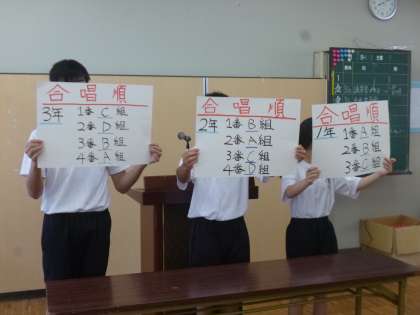 合唱順
3年
1番 C組
2番 D組
3番 B組
4番 A組
合唱順
2年
1番 B組
2番 A組
3番 C組
4番 D組
合唱順
1年
1番 A組
2番 B組
3番 C組